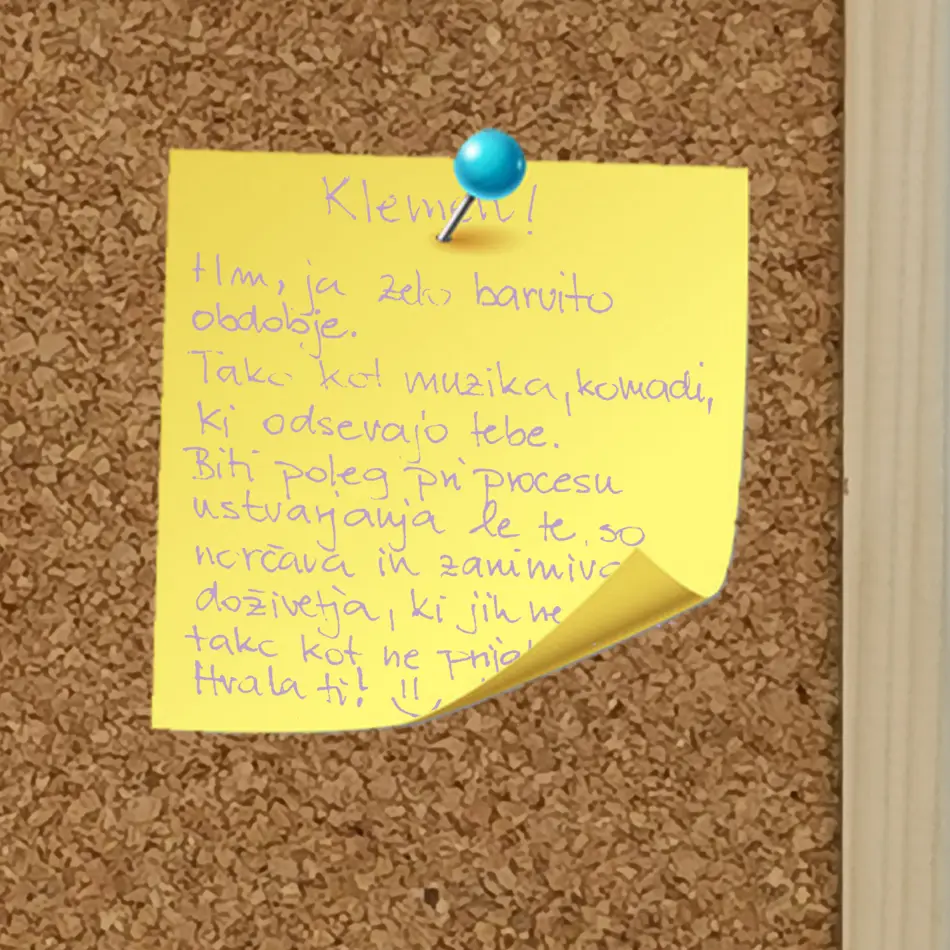 Klemen!
Hm, ja zelo barvito
obdobje.
Tako kot muzika, komadi,
ki odsevajo tebe.
Biti poleg pri procesu
ustvarjanja le te, so
norčava in zanimiva
doživetja, ki jih ne
tako kot ne
Hvala ti!